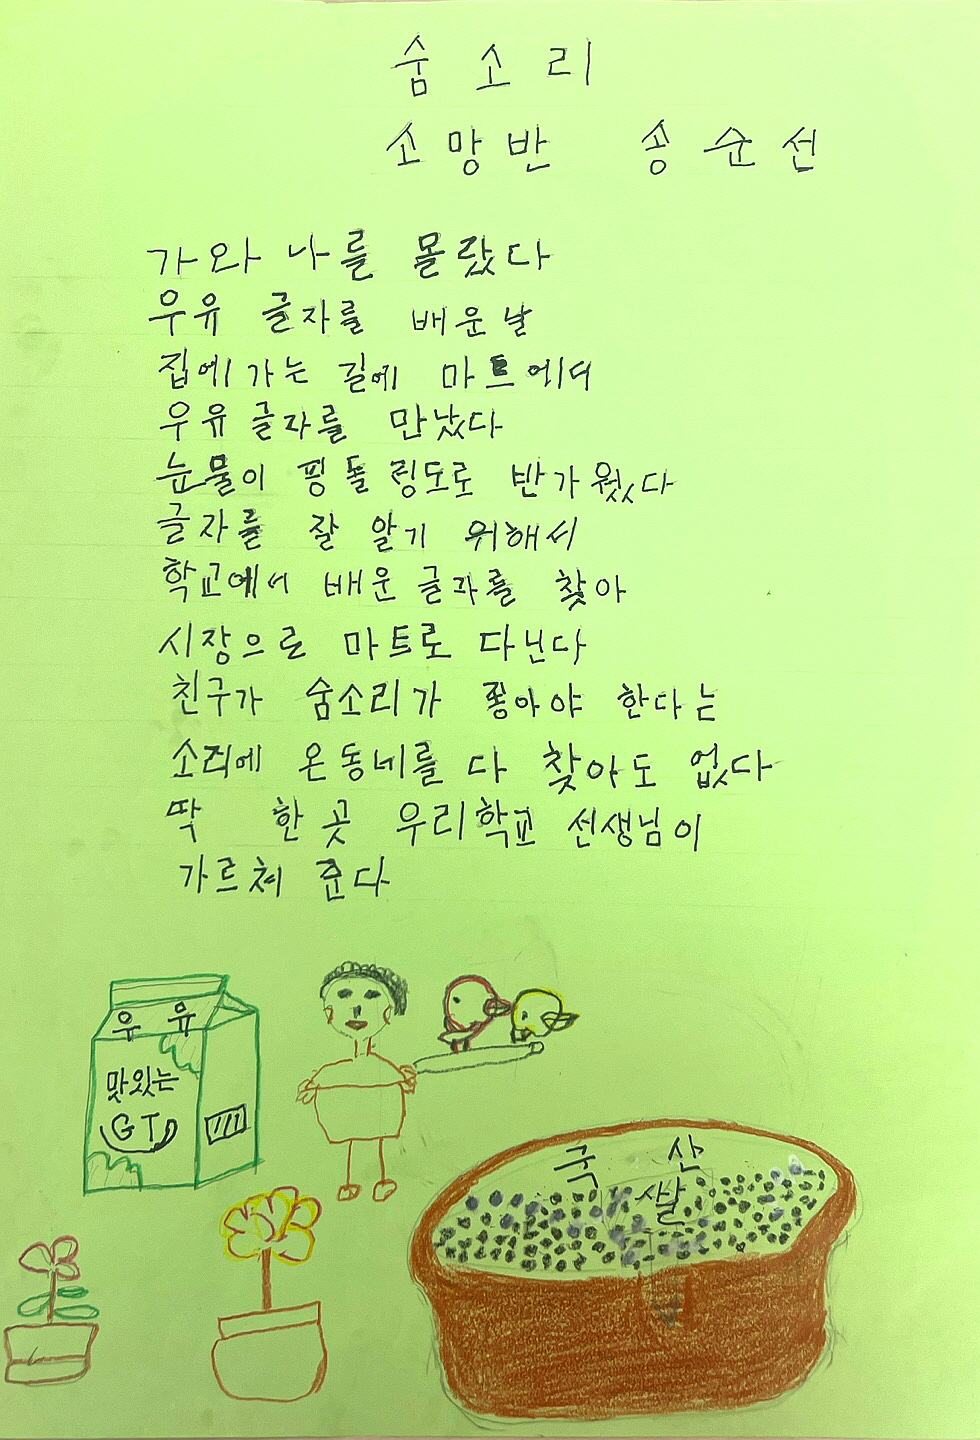 숨소리
소망반 송순선
가와 나를 몰랐다
우유 글자를 배운날
집에 가는 길에 마트에서
우유 글자를 만났다
눈물이 핑 돌 링도로 반가웠다
글자를 잘 알기 위해서
학교에서 배운 글자를 찾아
시장으로 마트로 다닌다
친구가 숨소리가 좋아야 한다는
소리에 온동네를 다 찾아도 없다
딱 한 곳 우리학교 선생님이
가르쳐 준다
우유
맛있는
GT
국산
쌀